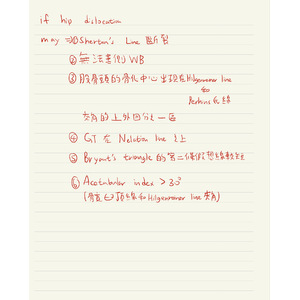 if hip dislocation
may ⇒ ① Sherton's Line 斷裂
② 無法患側 WB
③ 股骨頭的骨化中心出現在 Hilgenreiner line
和
Perkins 氏線
交角的上外四分之一區
④ GT 在 Nelation line 之上
⑤ Bryant's triangle 的第二條假想線較短
⑥ Acetabular index > 30°
(髖臼頂線和 Hilgenreiner line 夾角)